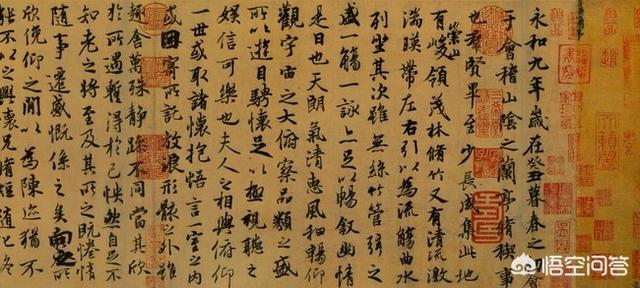 永和九年歲在癸丑暮春之初會
于會稽山陰之蘭亭脩稧事
也群賢畢至少長咸集此地
有崇山峻領茂林脩竹又有清流激
湍暎帶左右引以為流觴曲水
列坐其次雖無絲竹管弦之
盛一觴一詠亦足以暢敘幽情
是日也天朗氣清惠風和暢仰
觀宇宙之大俯察品類之盛
所以遊目騁懷足以極視聽之
娛信可樂也夫人之相與俯仰
一世或取諸懷抱悟言一室之內
或因寄所託放浪形骸之外雖
趣舍萬殊靜躁不同當其欣
於所遇暫得於己怏然自足不
知老之將至及其所之既惓情
隨事遷感慨係之矣向之所
欣俛仰之間以為陳迹猶不
能不以之興懷況脩短隨化終
悟空问答